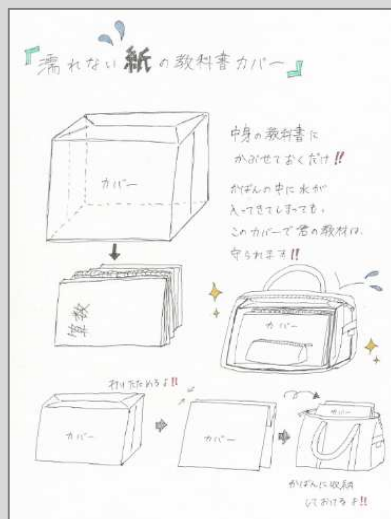 『濡れない紙の教科書カバー』
中身の教科書に
かぶせておくだけ!!
かばんの中に水が
入ってきてしまっても、
このカバーで君の教科は、
守られます!!
カバー
算数
カバー
折りたためるよ!!
カバー
カバー
カバー
かばんに収納
しておけるよ!!